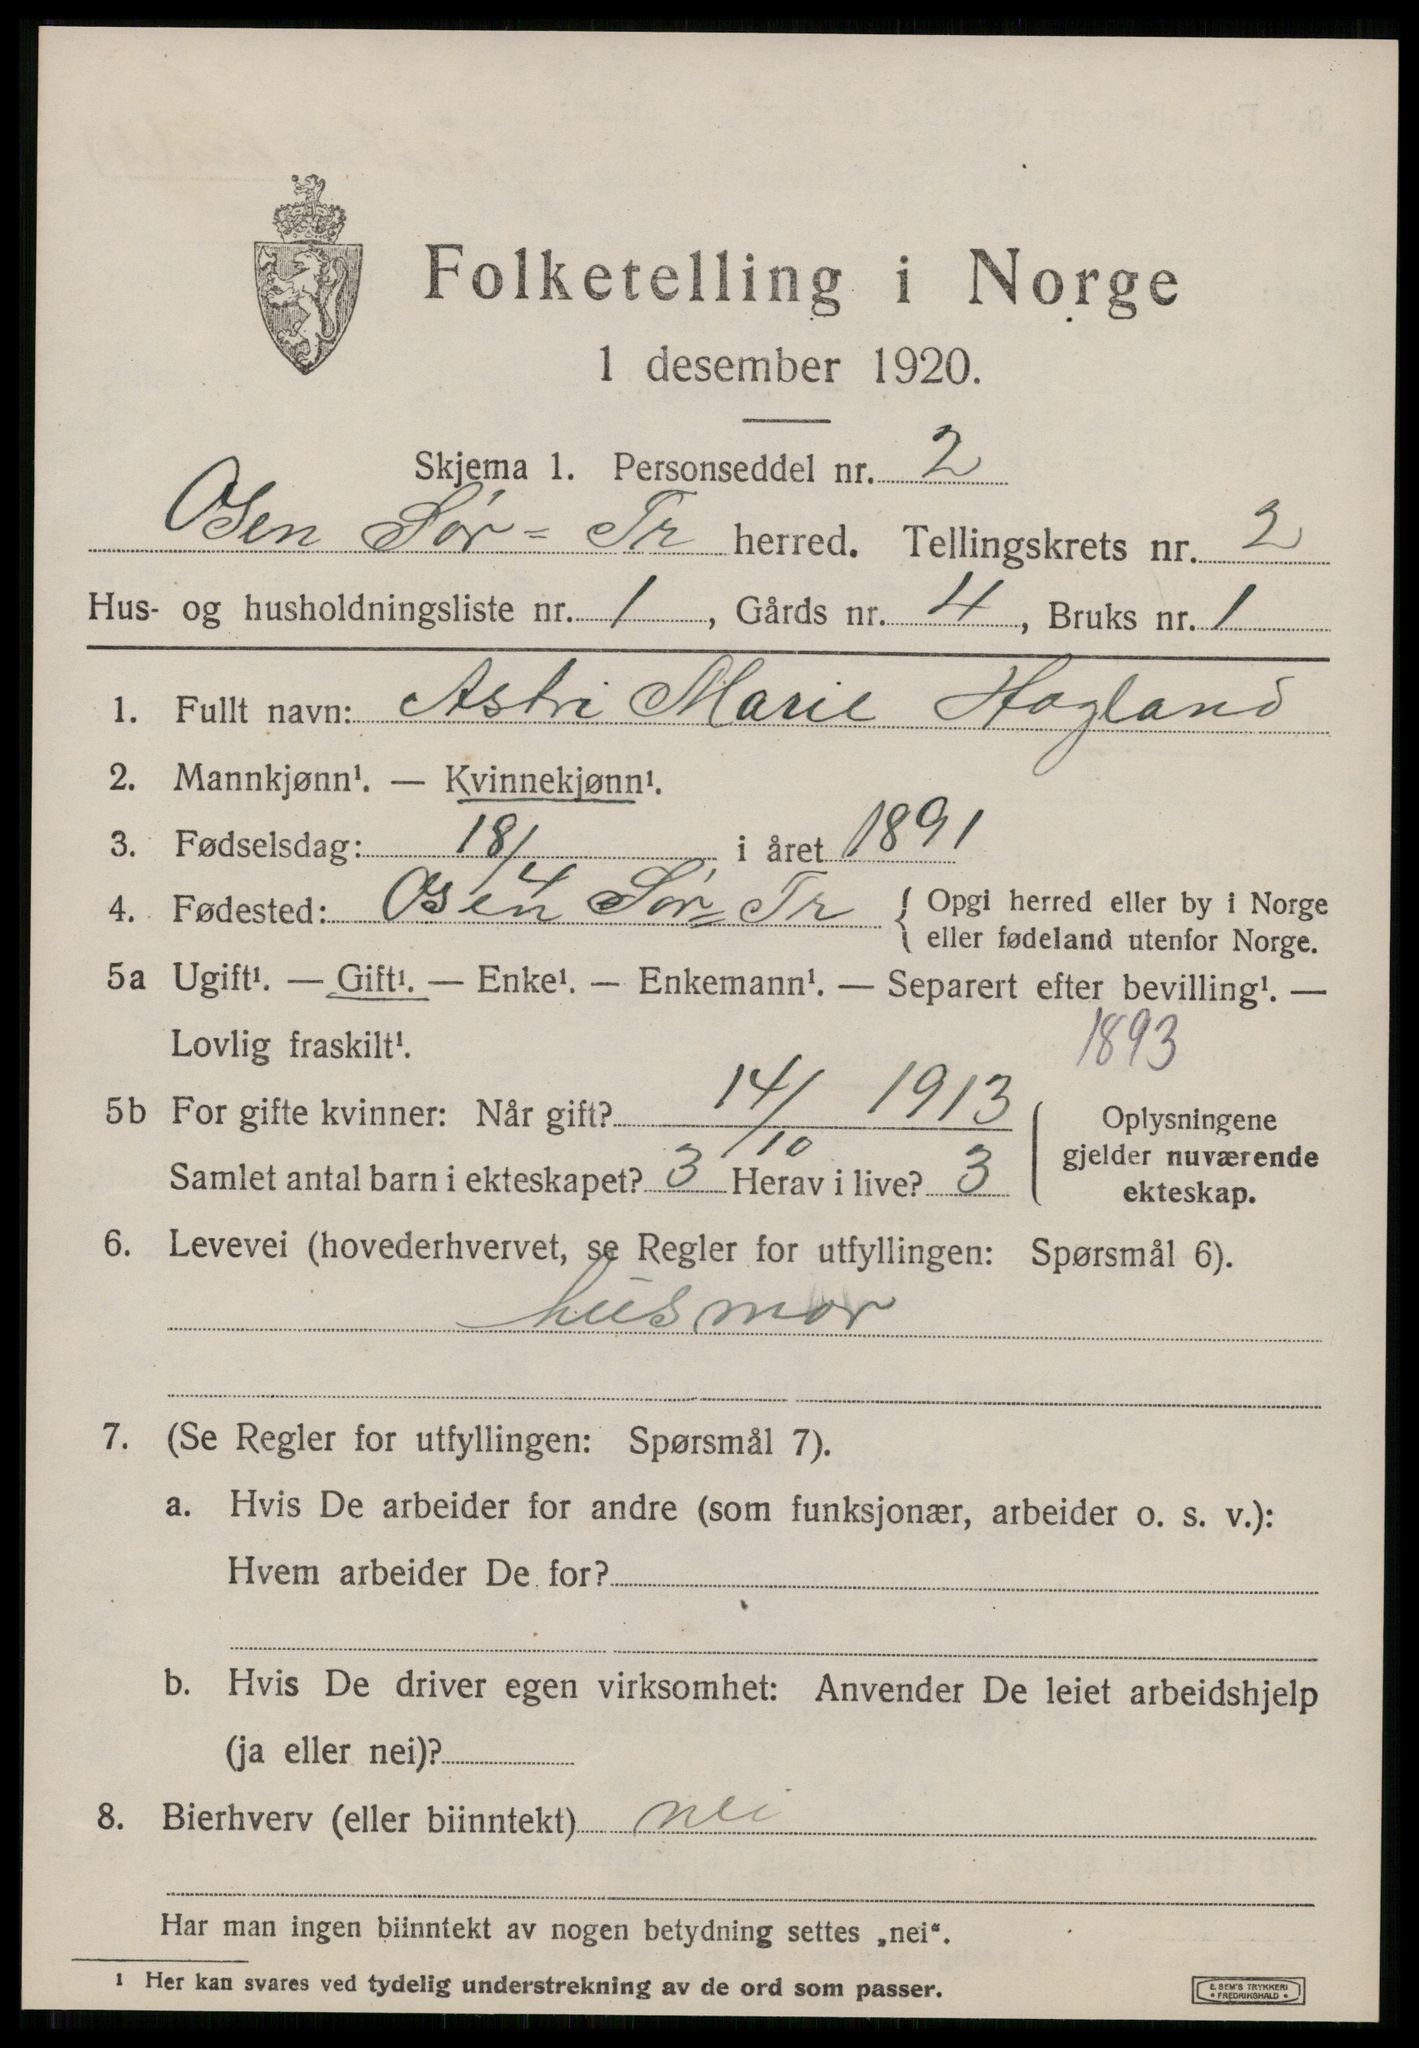 Folketelling i Norge
1 desember 1920.
Skjema 1. Personseddel nr. 2
Osen Sør= Tr herred. Tellingskrets nr. 2
Hus- og husholdningsliste nr. 1, Gårds nr. 4, Bruks nr. 1
1. Fullt navn: Astri Marie Hogland
2. Mannkjønn¹. — Kvinnekjønn¹.
3. Fødselsdag: 18/4 i året 1891
4. Fødested: Osen Sør= Tr { Opgi herred eller by i Norge
eller fødeland utenfor Norge.
5a Ugift¹. — Gift¹. — Enke¹. — Enkemann¹. — Separert efter bevilling¹. —
Lovlig fraskilt¹. 1893
5b For gifte kvinner: Når gift? 14/10 1913
Samlet antal barn i ekteskapet? 3 Herav i live? 3
Oplysningene
gjelder nuværende
ekteskap.
6. Levevei (hovederhvervet, se Regler for utfyllingen: Spørsmål 6).
husmor
7. (Se Regler for utfyllingen: Spørsmål 7).
a. Hvis De arbeider for andre (som funksjonær, arbeider o. s. v.):
Hvem arbeider De for?
b. Hvis De driver egen virksomhet: Anvender De leiet arbeidshjelp
(ja eller nei)?
8. Bierhverv (eller biinntekt) nei
Har man ingen biinntekt av nogen betydning settes „nei“.
1 Her kan svares ved tydelig understrekning av de ord som passer.
E. SEM'S TRYKKERI
• FREDRIKSHALD •